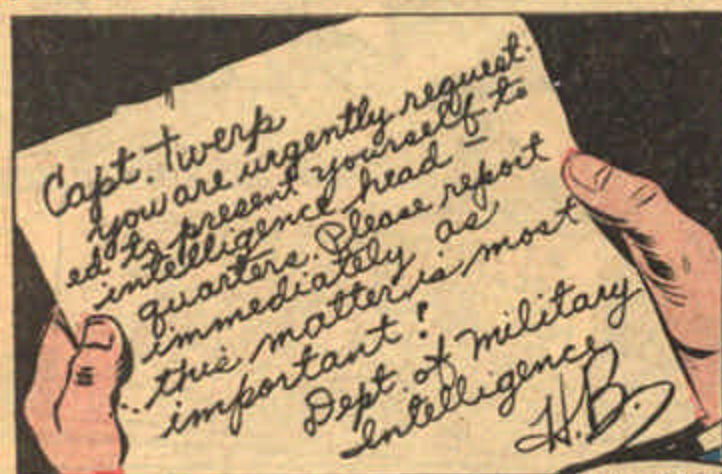 Capt. Twerp
you are urgently request-
ed to present yourself to
intelligence head -
quarters. Please report
immediately as
this matter is most
important!
Dept. of Military
Intelligence
H.B.